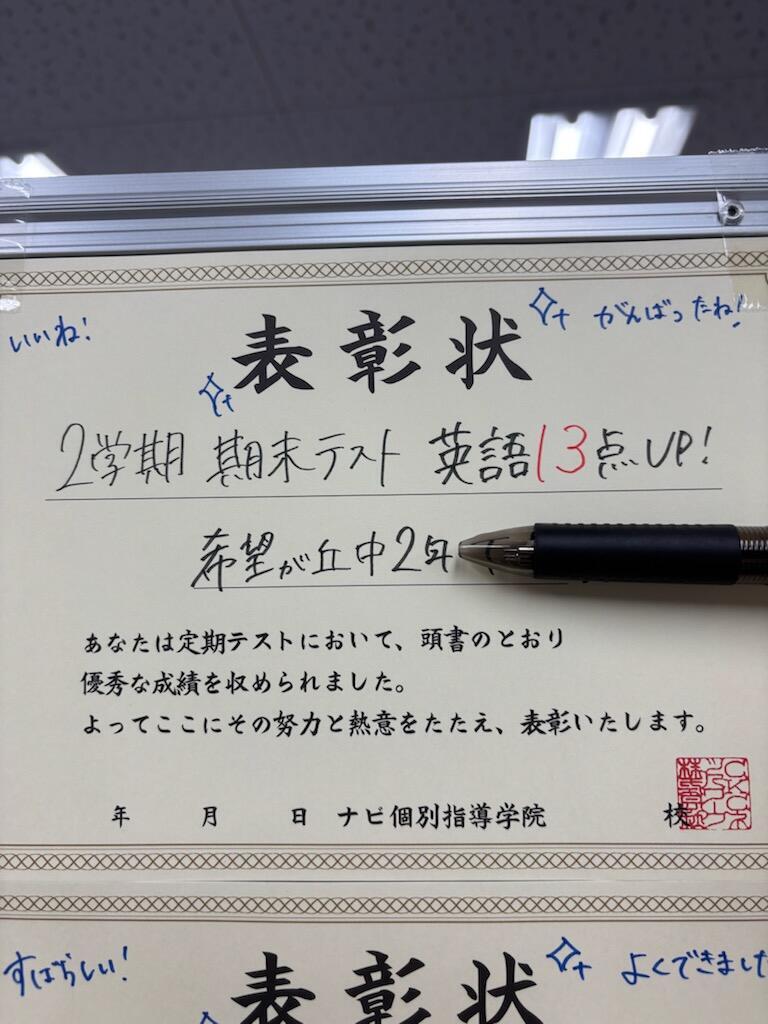 いいね!
がんばったね!
表彰状
2学期 期末テスト 英語13点UP!
希望が丘中2年
あなたは定期テストにおいて、頭書のとおり
優秀な成績を収められました。
よってここにその努力と熱意をたたえ、表彰いたします。
年 月 日 ナビ個別指導学院 校
すばらしい!
よくできました
表彰状